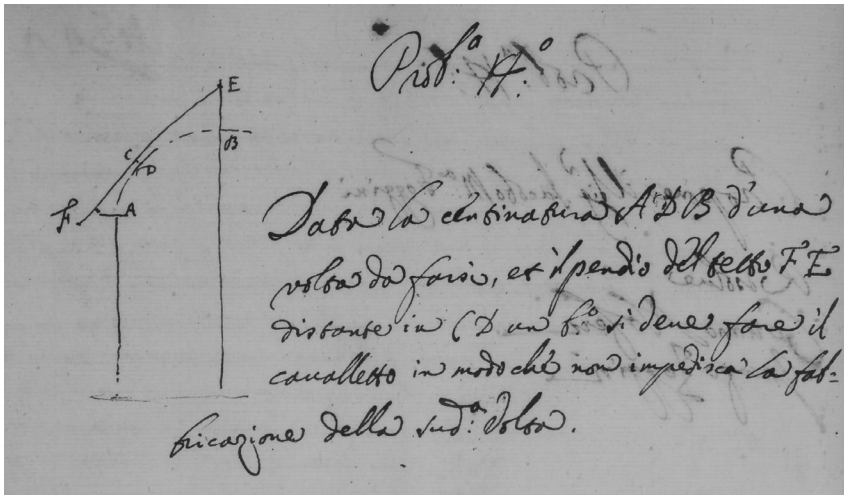 E
B
C
D
F
A
Prob.º
Data la centinatura A D B d'una
volta da farsi, et il pendio del tetto F E
distante in C D un b.º si deve fare il
cavalletto in modo che non impedisca la fab-
bricazione della sud.ª Volta.